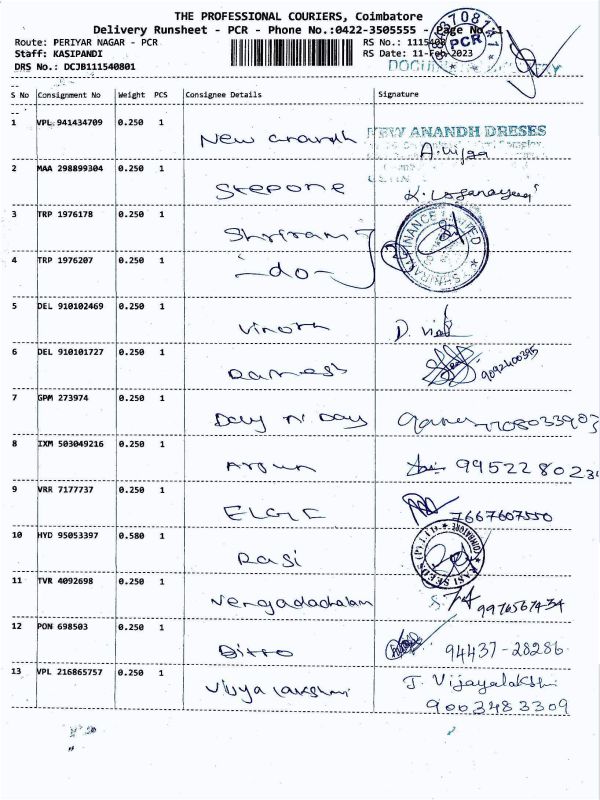 THE PROFESSIONAL COURIERS, Coimbatore
Delivery Runsheet - PCR - Phone No.:0422-3505555 - Page No.
Route: PERIYAR NAGAR - PCR
RS No.:
Staff: KASIPANDI
RS Date: 11-Feb-2023
DRS No.: DCJB111540801
PCR
S No Consignment No Weight PCS Consignee Details Signature
1 VPL 941434709 0.250 1 New anandh NEW ANANDH DRESES
A. vijaya
2 MAA 298899304 0.250 1 Stepone
3 TRP 1976178 0.250 1 Shriram
4 TRP 1976207 0.250 1 -do-
5 DEL 910102469 0.250 1 Vinoth D.
6 DEL 910101727 0.250 1 Ramesh 9092400395
7 GPM 273974 0.250 1 Day n Day 7708033903
8 IXM 503049216 0.250 1 Arjun
9 VRR 7177737 0.250 1 ELGI 7667607550
10 HYD 95053397 0.580 1 Rasi RASI SEEDS (P) LTD
11 TVR 4092698 0.250 1 Vengadachalam
12 PON 698503 0.250 1 Ditto 94437-28286
13 VPL 216865757 0.250 1 Vijya lakshmi J. Vijayalakshmi
9003483309